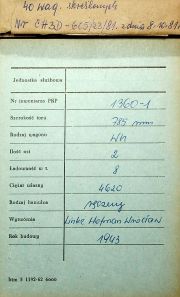 40 wag. skreślonych
Nr CH3D-605/23/81 z dnia 8.10.81
Jednostka służbowa
Nr inwentarza PKP 1360-1
Szerokość toru 785 mm
Rodzaj wagonu Wh
Ilość osi 2
Ładowność w t. 8
Ciężar własny 4620
Rodzaj hamulca ręczny
Wytwórnia Linke Hofman Wrocław
Rok budowy 1943